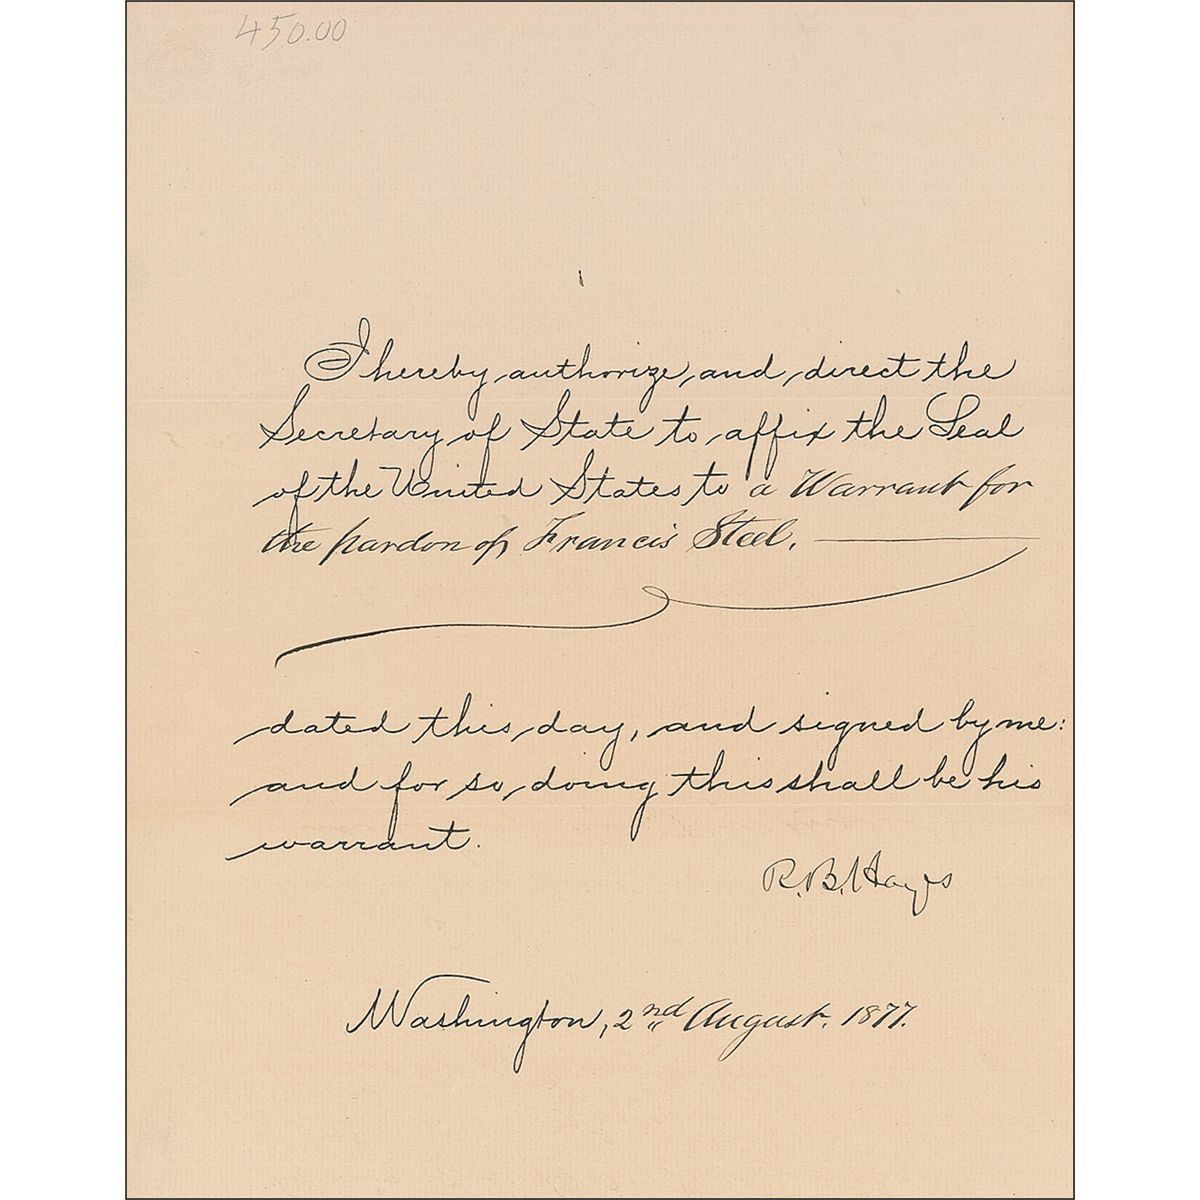 450.00
I hereby authorize and direct the
Secretary of State to affix the Seal
of the United States to a Warrant for
the pardon of Francis Steel.
dated this day, and signed by me:
and for so doing this shall be his
warrant.
R. B. Hayes
Washington, 2nd August. 1877.